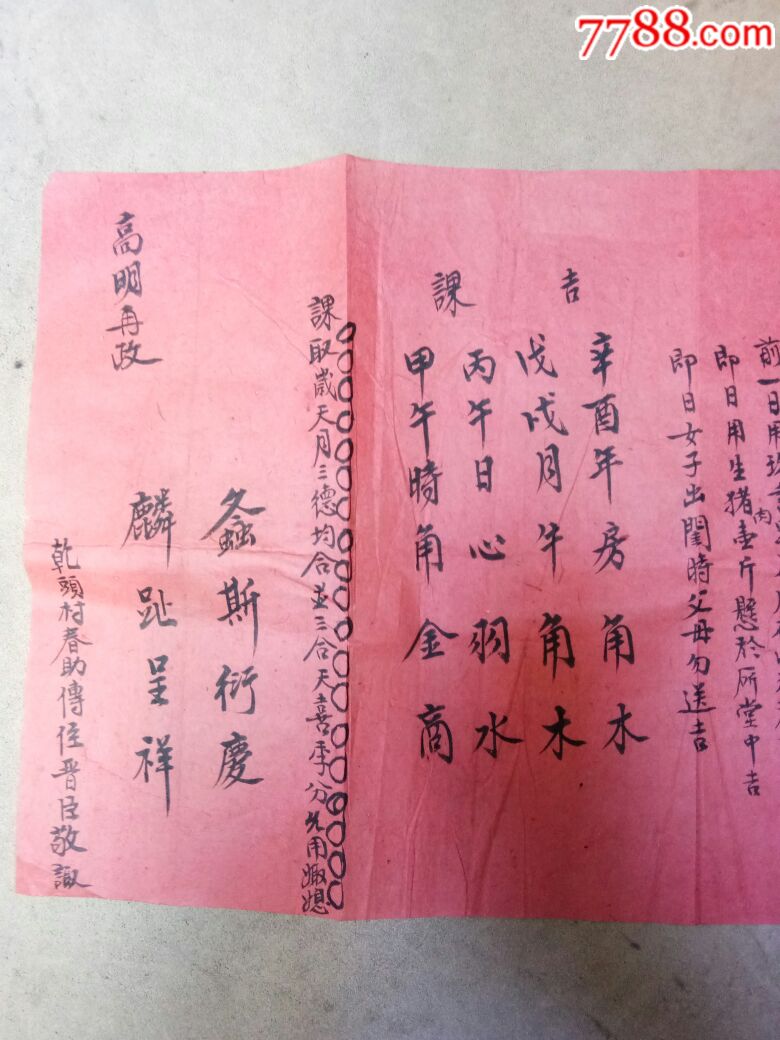 7788.com
前一日用
即日用生猪肉壶斤懸於厨堂中吉
即日女子出閨時父母勿送吉
吉課
辛酉年房角木
戊戌月牛角木
丙午日心羽水
甲午時角金商
課取歲天月三德均合並三合天喜季分兌用娵媳
螽斯衍慶
麟趾呈祥
高明再政
乾頭村春助傳侄晋臣敬諏